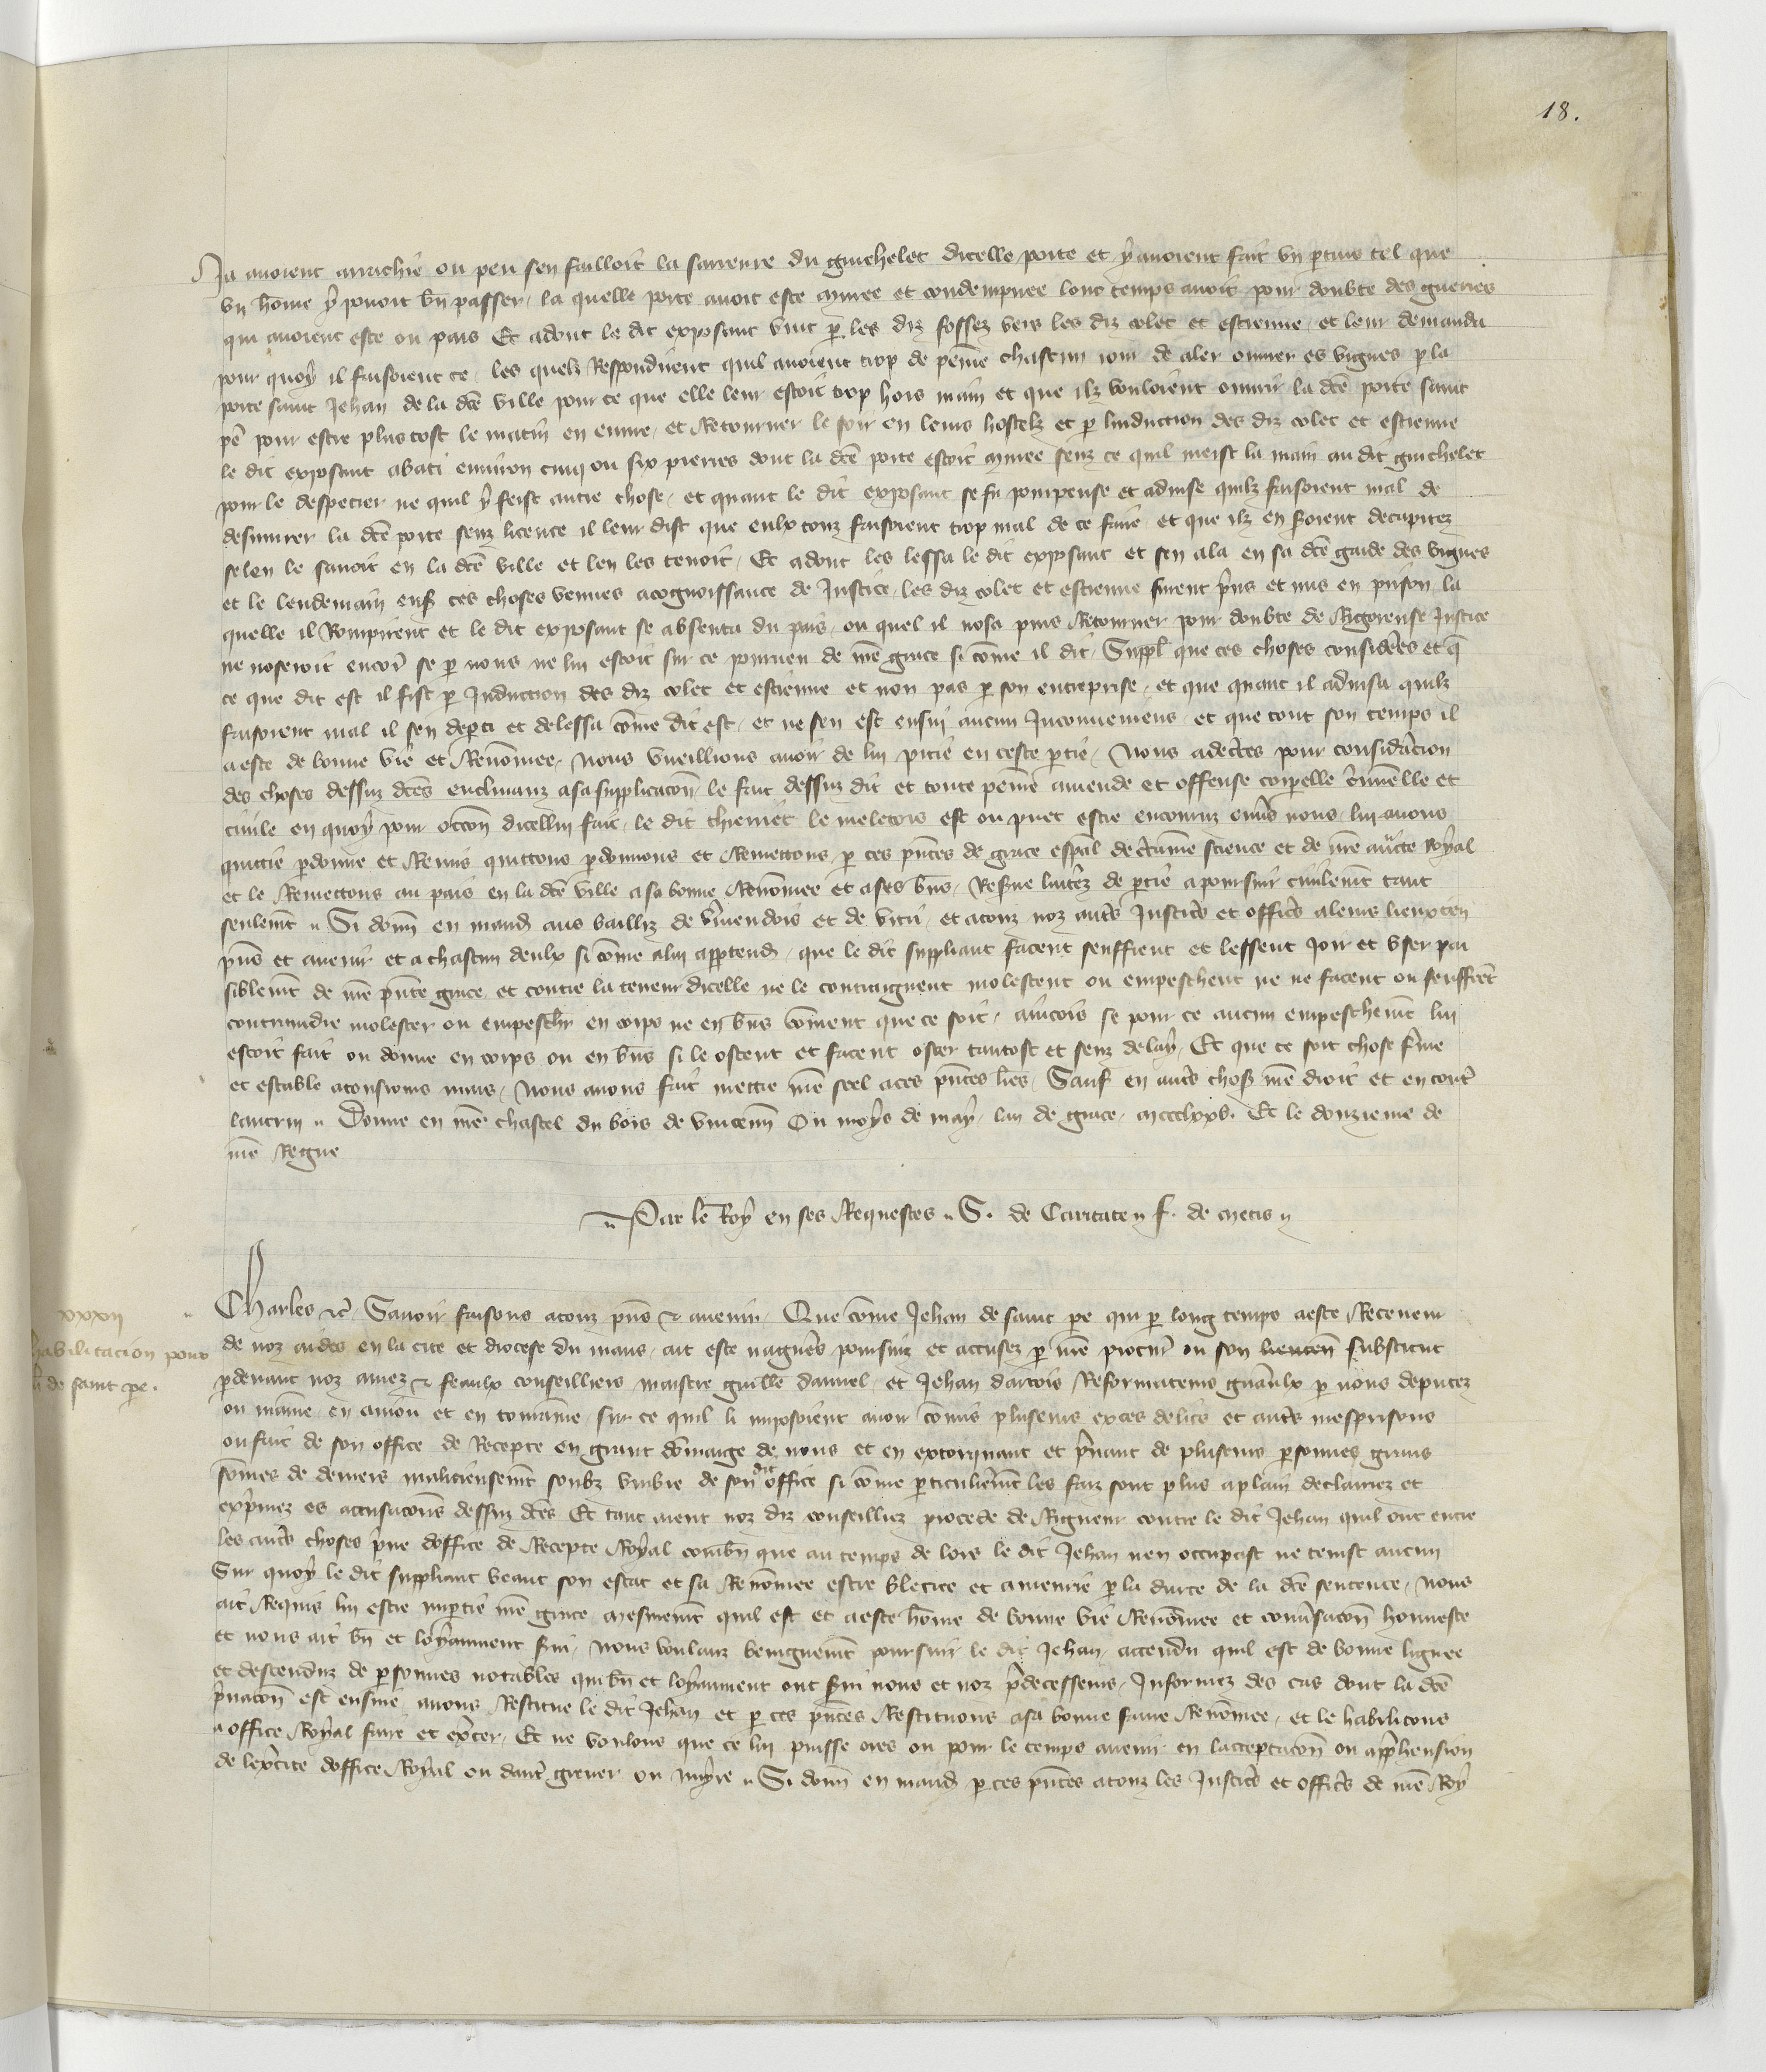 18.
Ja avoient arrachie ou peu sen failloit la sarreure du guichelet dicelle porte et y avoient fait un ptuis tel que
un hom̄e y povoit bn̄ passer, la quelle porte avoit este muree et condempnee lonc temps avoit pour doubte des guerres
qui avoient este ou pais Et adont le dit exposant vint p les diz fossez vers les diz colet et estienne, et leur demanda
pour quoy il faisoient ce, les quelz Respondirent quil avoient trop de peine chascun iour de aler ouvrer es vignes p la
porte saint Jehan de la dc̄e ville pour ce que elle leur estoit trop hors main et que ilz vouloient ouvrir la dc̄e porte saint
pe pour estre plus tost le matin en euvre, et Retourner le soir en leurs hostelz et p linduction des diz colet et estienne
le dit exposant abati environ cinq ou six pierres dont la dc̄e porte estoit muree senz ce quil meist la main au dit guichelet
pour le despecier ne quil y feist autre chose, et quant le dit exposant se fu pourpense et advise quilz faisoient mal de
desmurer la dc̄e porte senz licence il leur dist que eulx touz faisoient trop mal de ce faire, et que ilz en soient decapitez
se len le savoit en la dc̄e ville et len les tenoit, Et adont les lessa le dit exposant et sen ala en sa dc̄e garde des vignes
et le lendemain ens̄ ces choses venues a cognoissance de Justice, les diz colet et estienne furent pris et mis en prison, la
quelle il Rompirent et le dit exposant se absenta du pais, ou quel il nosa puis Retourner pour doubte de Rigoreuse Justice
ne noseroit encor se p nous ne lui estoit sur ce pourveu de nre grace si com̄e il dit, Suppl que ces choses considerees et q̄
ce que dit est il fist p Induction des diz colet et estienne et non pas p son entreprise, et que quant il advisa quilz
faisoient mal il sen depti et delessa com̄e dit est, et ne sen est ensui aucun Inconveniens, et que tout son temps il
a este de bonne vie et Renom̄ee, Nous vueillions avoir de lui pitie en ceste ptie, Nous adectes pour consideracion
des choses dessuz dc̄es enclinanz a sa supplicacōn, le fait dessuz dit et toute peine amende et offense corpelle criminelle et
civile en quoy pour occōn dicellui fait, le dit thieriet le meletois est ou puet estre encouruz envs nous, lui avons
quittie pdonne et Remis quittons pdonnons et Remettons, p ces pn̄tes de grace espāl de ctaine science et de nre aucte Royal
et le Remettons au pais en la dc̄e ville a sa bonne Renom̄ee et a ses bn̄s, Reserve lintez de ptie a poursuir civilemt tant
seulemt Si donn̄ en mand aus bailliz de vmendois et de vitri, et a touz noz autres Justicrs et officrs a leurs lieuxten
pns et avenir et a chascun deulx si com̄e a lui apptend, que le dit suppliant facent seuffrent et lessent Joir et user pai
siblemt de nre pn̄te grace, et contre la teneur dicelle ne le contraignent molestent ou empeschent ne ne facent ou seuffrēt
contraindre molester ou empeschr en corps ne en bn̄s com̄ent que ce soit, aincois se pour ce aucun empeschemt lui
estoit fait ou donne en corps ou en bn̄s si le ostent et facent oster tantost et senz delay, Et que ce soit chose ferme
et estable a tousiours mais, Nous avons fait mettre nre seel a ces pn̄tes lres, Sauf en autres choses nre droit et en tout
lautrui Donne en nre chastel du bois de vincenn̄ Ou moys de may, lan de grace, mccclxxv. Et le douzieme de
nre Regne
Par le Roy en ses Requestes S. de Caritate f. de metis
xxxii
habilitacion pour
de saint pe.
Charles etc Savoir faisons a touz pns & avenir, Que com̄e Jehan de saint pe qui p long temps a este Receveur
de noz aides en la cite et diocese du mans, ait este nagueres poursuiz et accusez p nre procur ou son lieuten̄ substitut
pdevant noz amez & feaulx conseilliers maistre guille daunel, et Jehan dartois Reformateurs gn̄aulx p nous deputez
ou maine, en aniou et en touraine, sur ce quil li imposoient avoir com̄is plusieurs exces deliz et autres mesprisons
ou fait de son office de Recepte en grant dom̄aige de nous et en extorquant et prenant de plusieurs psonnes grans
som̄es de deniers malicieusemt soubz umbre de son dit office si com̄e pticulieremt les faiz sont plus a plain declairez et
exprimez es accusacōns dessuz dc̄es Et tant aient noz diz conseilliez procede de Rigueur contre le dit Jehan quil ont entre
les autres choses prive doffice de Recepte Royal combn̄ que au temps de lors le dit Jehan nen occupast ne tenist aucun
Sur quoy le dit suppliant veant son estat et sa Renom̄ee estre blecice et amenrie p la durte de la dc̄e sentence, nous
ait Requis lui estre imptie nre grace, mesmemt quil est et a este hom̄e de bonne vie Renom̄ee et conv̄sacōn honneste
et nous ait bn̄ et loyaument servi, Nous voulanz benignemt poursuir le dit Jehan, attendu quil est de bonne lignee
et descenduz de psonnes notables qui bn̄ et loyaument ont servi nous et noz predecesseurs, Informez des cas dont la dc̄e
privacōn est ensuie, avons Restitue le dit Jehan et p ces pn̄tes Restituons a sa bonne fame Renom̄ee, et le habilitons
a office Royal faire et excer, Et ne voulons que ce lui puisse ores ou pour le temps avenir en lacceptacōn ou apprehension
de lexcite doffice Royal ou dautre grever ou nuyre Si donn̄ en mand p ces pn̄tes a touz les Justicrs et officrs de nre Roy